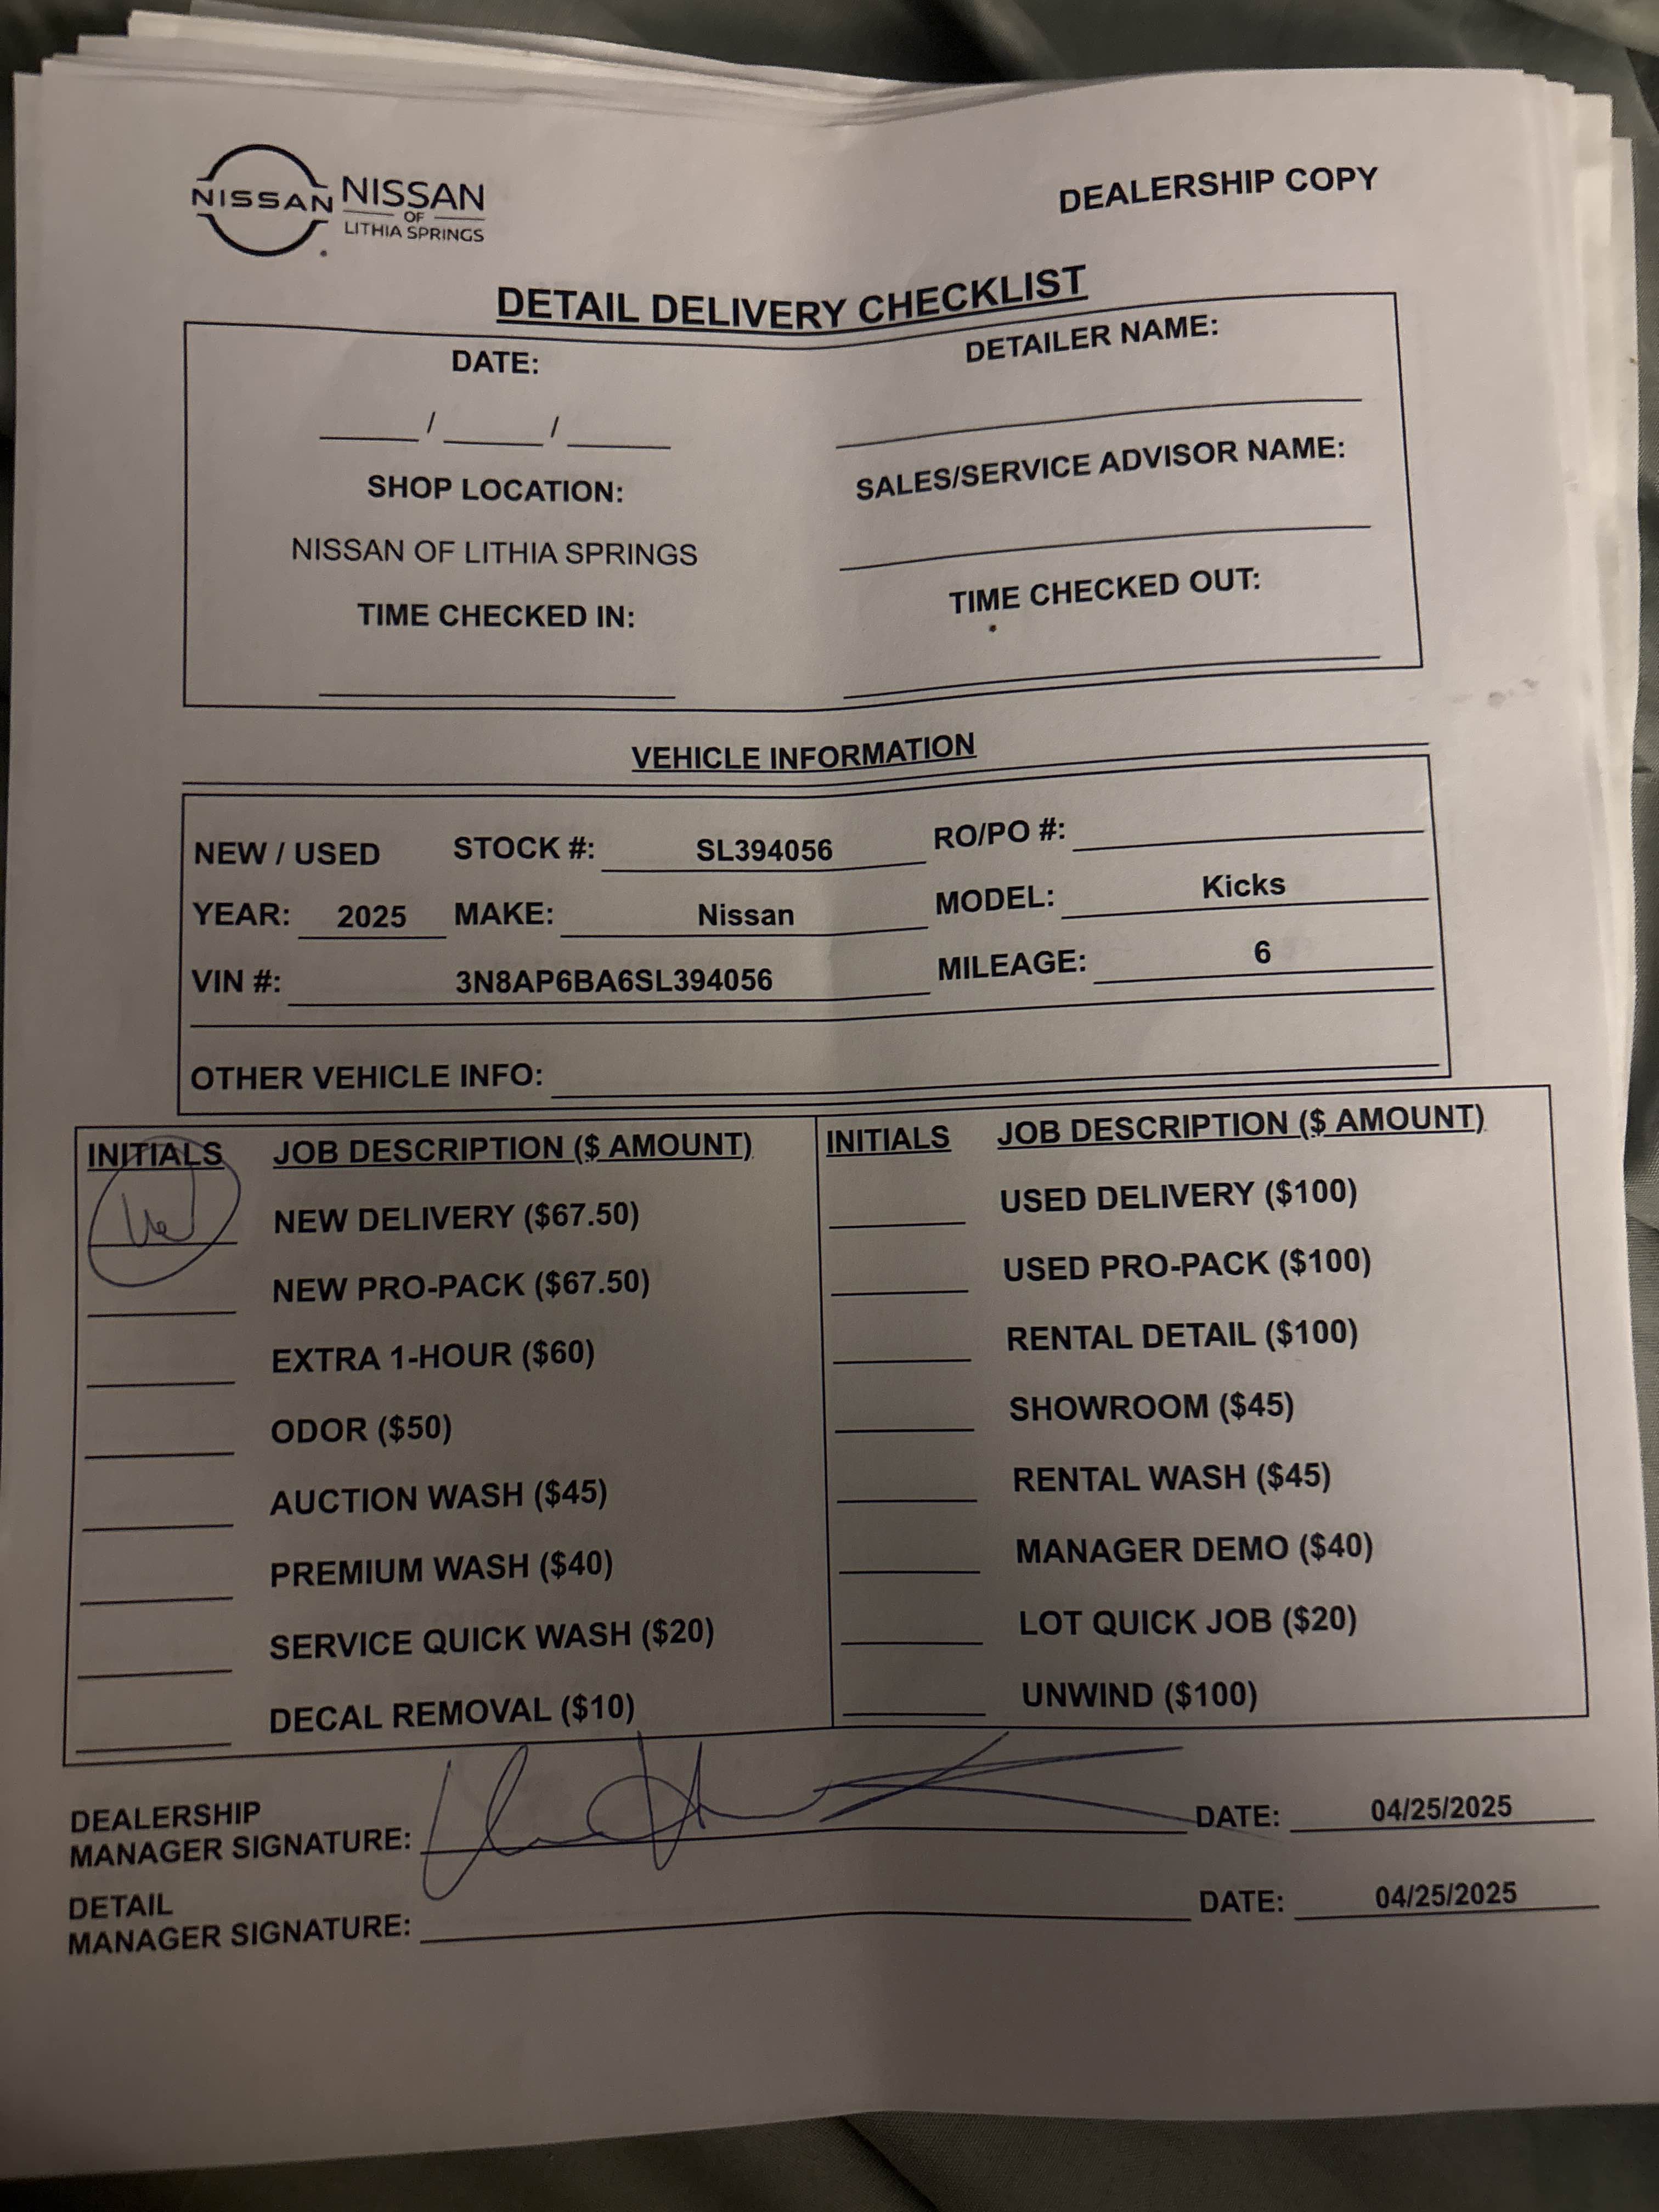 NISSAN
NISSAN
OF
LITHIA SPRINGS
DEALERSHIP COPY
DETAIL DELIVERY CHECKLIST
DATE:
DETAILER NAME:
____ / ____ / ____
SHOP LOCATION:
SALES/SERVICE ADVISOR NAME:
NISSAN OF LITHIA SPRINGS
TIME CHECKED IN:
TIME CHECKED OUT:
VEHICLE INFORMATION
NEW / USED STOCK #: SL394056 RO/PO #:
YEAR: 2025 MAKE: Nissan MODEL: Kicks
VIN #: 3N8AP6BA6SL394056 MILEAGE: 6
OTHER VEHICLE INFO:
INITIALS JOB DESCRIPTION ($ AMOUNT)
NEW DELIVERY ($67.50)
NEW PRO-PACK ($67.50)
EXTRA 1-HOUR ($60)
ODOR ($50)
AUCTION WASH ($45)
PREMIUM WASH ($40)
SERVICE QUICK WASH ($20)
DECAL REMOVAL ($10)
INITIALS JOB DESCRIPTION ($ AMOUNT)
USED DELIVERY ($100)
USED PRO-PACK ($100)
RENTAL DETAIL ($100)
SHOWROOM ($45)
RENTAL WASH ($45)
MANAGER DEMO ($40)
LOT QUICK JOB ($20)
UNWIND ($100)
DEALERSHIP
MANAGER SIGNATURE: DATE: 04/25/2025
DETAIL
MANAGER SIGNATURE: DATE: 04/25/2025